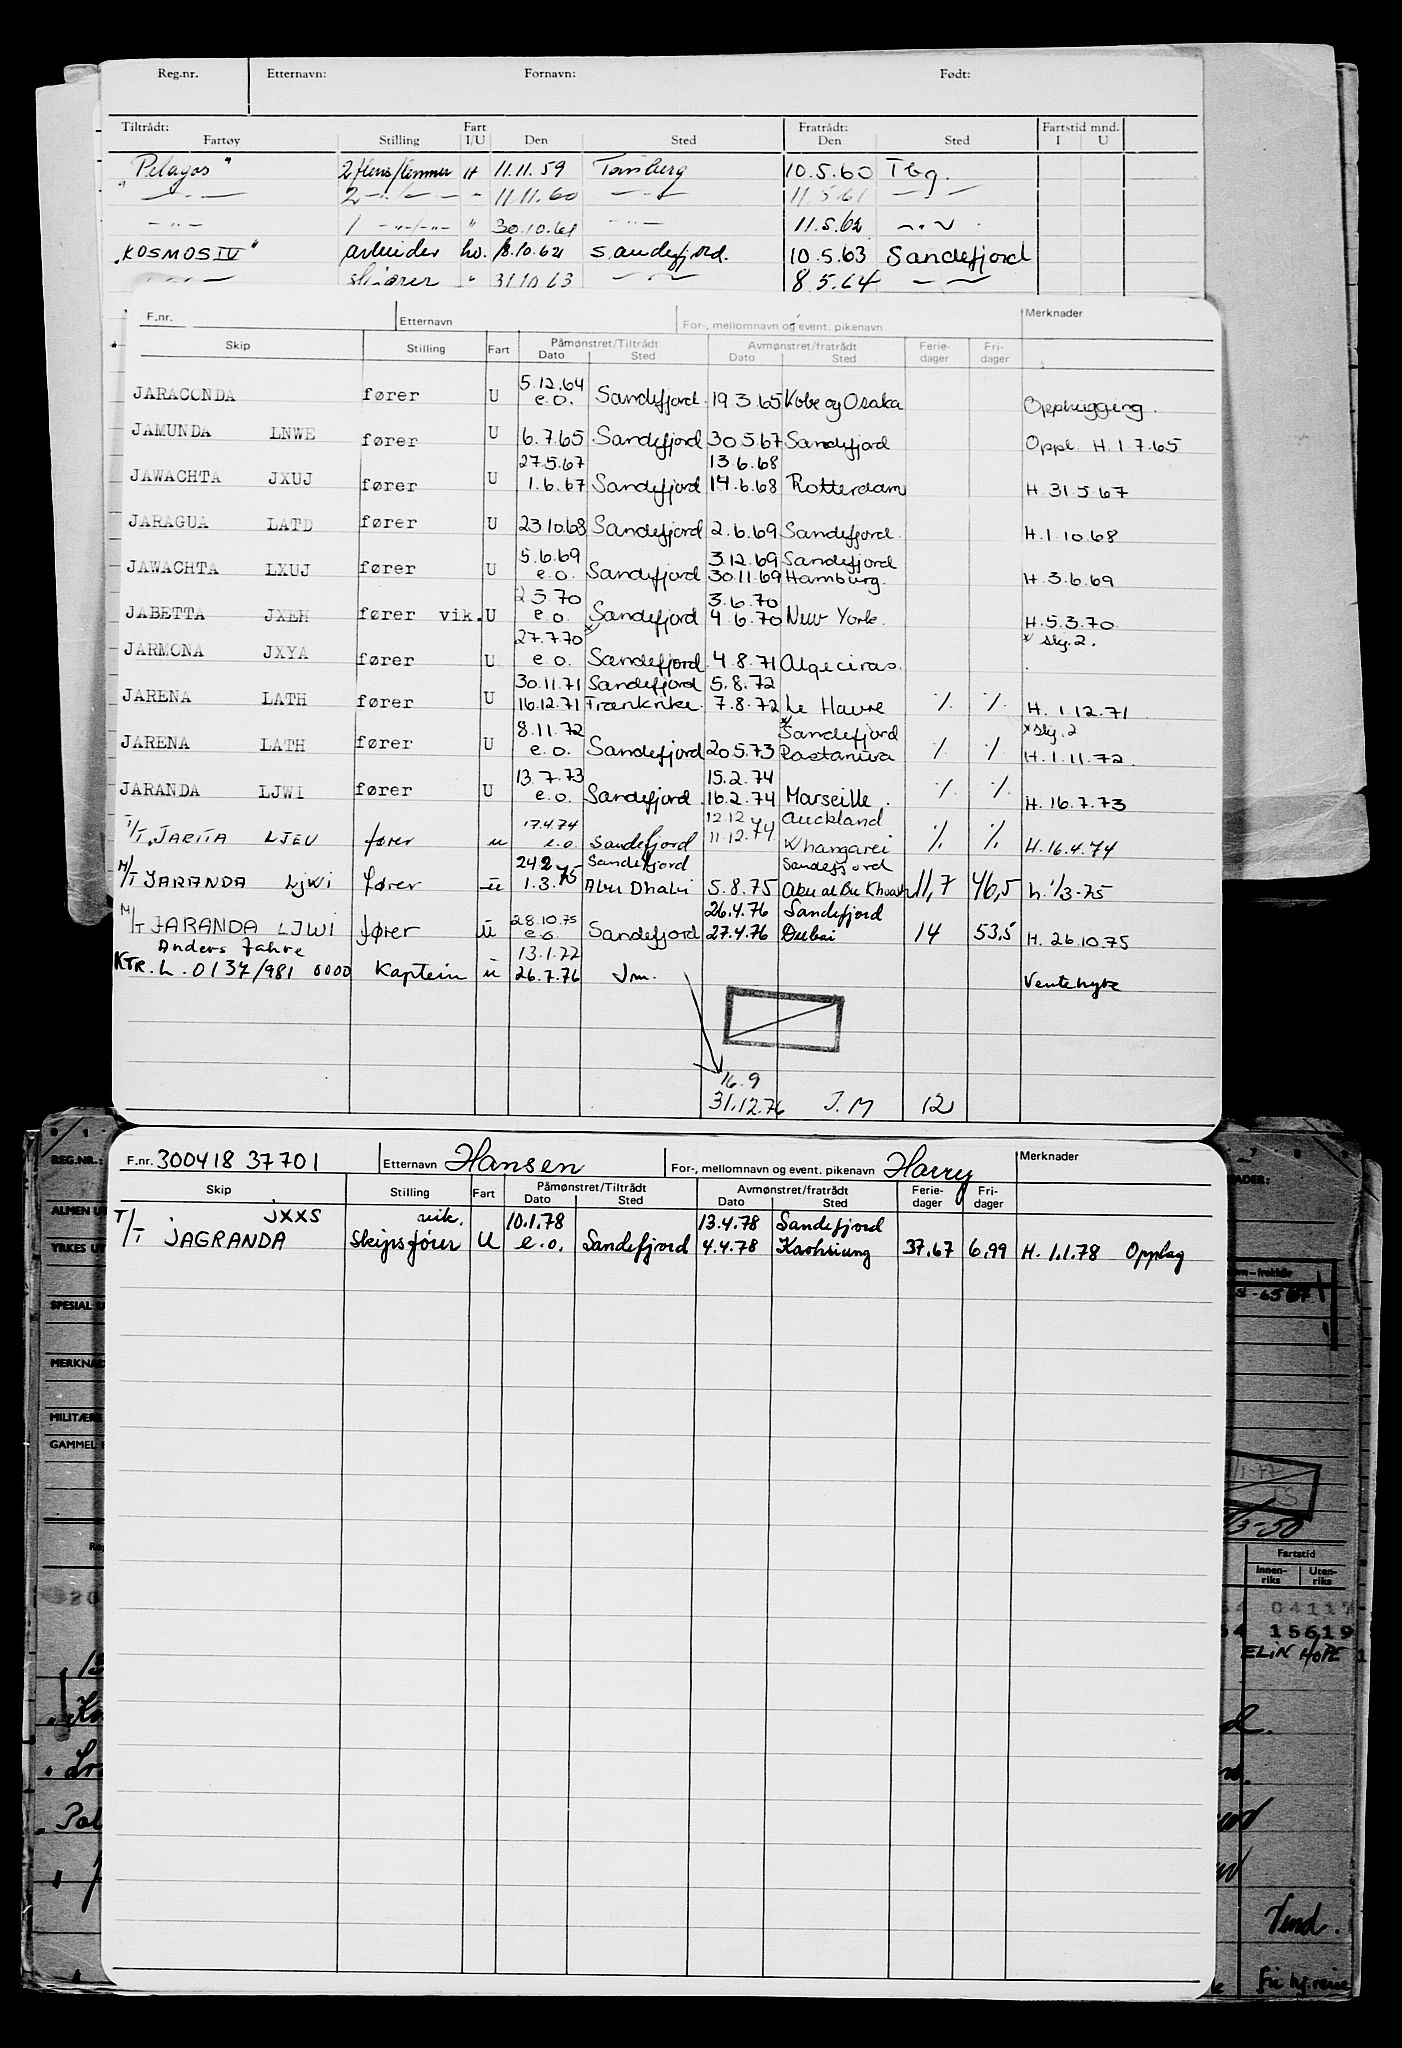 Reg.nr. Etternavn: Fornavn: Født:
Tiltrådt: Fart Fratrådt: Fartstid mnd.
Fartøy Stilling I/U Den Sted Den Sted I U
"Pelagos" 11.11.59 Tønsberg 10.5.60 Tbg.
" — " — 2 — " — 11.11.60 — " — 11.5.61 — " —
— " — 1 — " — " 30.10.61 — " — 11.5.62 — " —
"KOSMOS IV" arbeider hv. 18.10.62 Sandefjord. 10.5.63 Sandefjord
— " — " 31.10.63 — " — 8.5.64 — " —
F.nr. Etternavn For-, mellomnavn og event. pikenavn Merknader
Skip Stilling Fart Påmønstret/Tiltrådt Avmønstret/fratrådt Ferie- Fri-
Dato Sted Dato Sted dager dager
5.12.64
JARACONDA fører U e.o. Sandefjord 19.3.65 Kobe og Osaka Opphugging.
JAMUNDA LNWE fører U 6.7.65 Sandefjord 30.5.67 Sandefjord Oppl. H. 1.7.65
27.5.67 13.6.68
JAWACHTA JXUJ fører U 1.6.67 Sandefjord 14.6.68 Rotterdam H. 31.5.67
JARAGUA LATD fører U 23.10.68 Sandefjord 2.6.69 Sandefjord. H. 1.10.68
5.6.69 3.12.69 Sandefjord
JAWACHTA LXUJ fører U e.o. Sandefjord 30.11.69 Hamburg. H. 3.6.69
2.3.70 3.6.70
JABETTA JXEH fører vik. U e.o. Sandefjord 4.6.70 New York. H. 5.3.70
27.7.70 x x skj. 2.
JARMONA JXYA fører U e.o. Sandefjord 4.8.71 Algeciras.
30.11.71 Sandefjord 5.8.72
JARENA LATH fører U 16.12.71 Frankrike. 7.8.72 Le Havre ٪ ٪ H. 1.12.71
8.11.72 x Sandefjord x skj. 2
JARENA LATH fører U e.o. Sandefjord 20.5.73 ٪ ٪ H. 1.11.72
13.7.73 15.2.74
JARANDA LJWI fører U e.o. Sandefjord 16.2.74 Marseille. ٪ ٪ H. 16.7.73
17.4.74 12.12 Auckland
T/T "JARITA LJEU fører u e.o. Sandefjord 11.12.74 Whangarei ٪ ٪ H. 16.4.74
24.2.75 Sandefjord Sandefjord
M/T JARANDA LJWI fører u 1.3.75 Abu Dhabi 5.8.75 Abu al Bu Khoosh 11,7 46,5 h. 1/3-75
28.10.75 26.4.76 Sandefjord
M/T JARANDA LJWI fører u e.o. Sandefjord 27.4.76 Dubai 14 53,5 H. 26.10.75
Anders Jahre 13.1.77
KTR. L. 0137/981 0000 Kaptein u 26.7.76 J.m. Ventehyre
16.9
31.12.76 J.M 12
F.nr. 300418 37701 Etternavn Hansen For-, mellomnavn og event. pikenavn Harry Merknader
Skip Stilling Fart Påmønstret/Tiltrådt Avmønstret/fratrådt Ferie- Fri-
Dato Sted Dato Sted dager dager
JXXS vik. 10.1.78 13.4.78 Sandefjord
T/T JAGRANDA Skipsfører U e.o. Sandefjord 4.4.78 Kaohsiung 37,67 6,99 H. 1.1.78 Opplag
REG.NR.:
YRKES UT
MERKNAD
MILITÆRE
Fartstid
Innen- Uten-
riks riks
04117
15619
ELIN HOPE
3-50